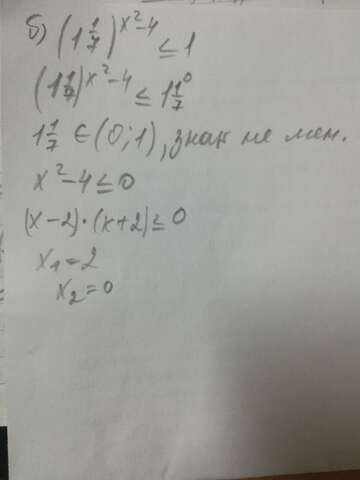 б) (1 1/7)^(x²-4) ≤ 1
(1 1/7)^(x²-4) ≤ 1 1/7^0
1 1/7 ∈ (0; 1), знак не мен.
x²-4 ≤ 0
(x-2)·(x+2) ≤ 0
x₁ = 2
x₂ = 0